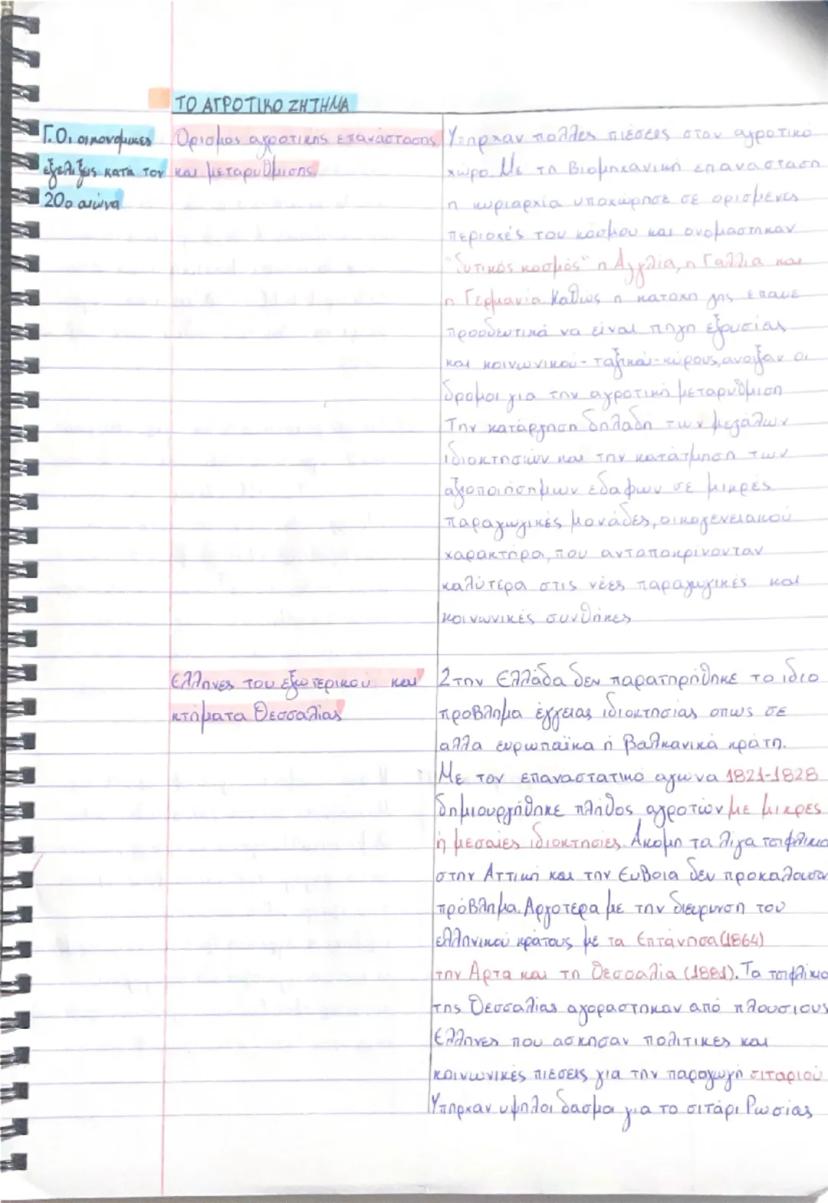 ΤΟ ΑΓΡΟΤΙΚΟ ΖΗΤΗΜΑ
Γ. Οι οικονομικες
εξελιξεις κατα τον
20ο αιώνα
Ορισμος αγροτικης επαναστασης
και μεταρυθμισης
Υπηρχαν πολλες πιέσεις στον αγροτικό
χωρο. Με τη βιομηχανικη επανασταση
η κυριαρχία υποχωρησε σε ορισμένες
περιοχές του κοσμου και ονομαστηκαν
"δυτικός κοσμός" η Αγγλία, η Γαλλία και
η Γερμανία. Καθως η κατοχη γης επαυε
προοδευτικά να είναι πηγη εξουσίας
και κοινωνικού-ταξικού-κύρους, ανοιξαν οι
δρομοι για την αγροτική μεταρυθμιση
Την κατάργηση δηλαδη των μεγάλων
ιδιοκτησιών και την κατάτμηση των
αξιοποιήσημων εδαφων σε μικρές
παραγωγικές μονάδες, οικογενειακού
χαρακτήρα, που ανταποκρινονταν
καλύτερα στις νέες παραγωγικές και
κοινωνικές συνθήκες
Ελληνες του εξωτερικού και
κτήματα Θεσσαλίας
Στην Ελλάδα δεν παρατηρήθηκε το ιδιο
πρόβλημα έγγειας ιδιοκτησίας οπως σε
αλλα ευρωπαϊκα ή βαλκανικά κράτη.
Με τον επαναστατικο αγωνα 1821-1828
δημιουργήθηκε πληθος αγροτών με μικρες
ή μεσαίες ιδιοκτησίες. Ακομη τα λιγα τσιφλικια
στην Αττική και την Ευβοια δεν προκαλουσαν
πρόβλημα. Αργοτερα με την διευρυνση του
ελληνικού κρατους με τα Επτάνησα (1864)
την Αρτα και τη Θεσσαλία (1881). Τα τσιφλικια
της Θεσσαλίας αγοραστηκαν από πλουσιους
Ελληνες που ασκησαν πολιτικες και
κοινωνικές πιέσεις για την παραγωγη σιταριού
Υπηρχαν υψηλοι δασμοι για το σιτάρι Ρωσίας